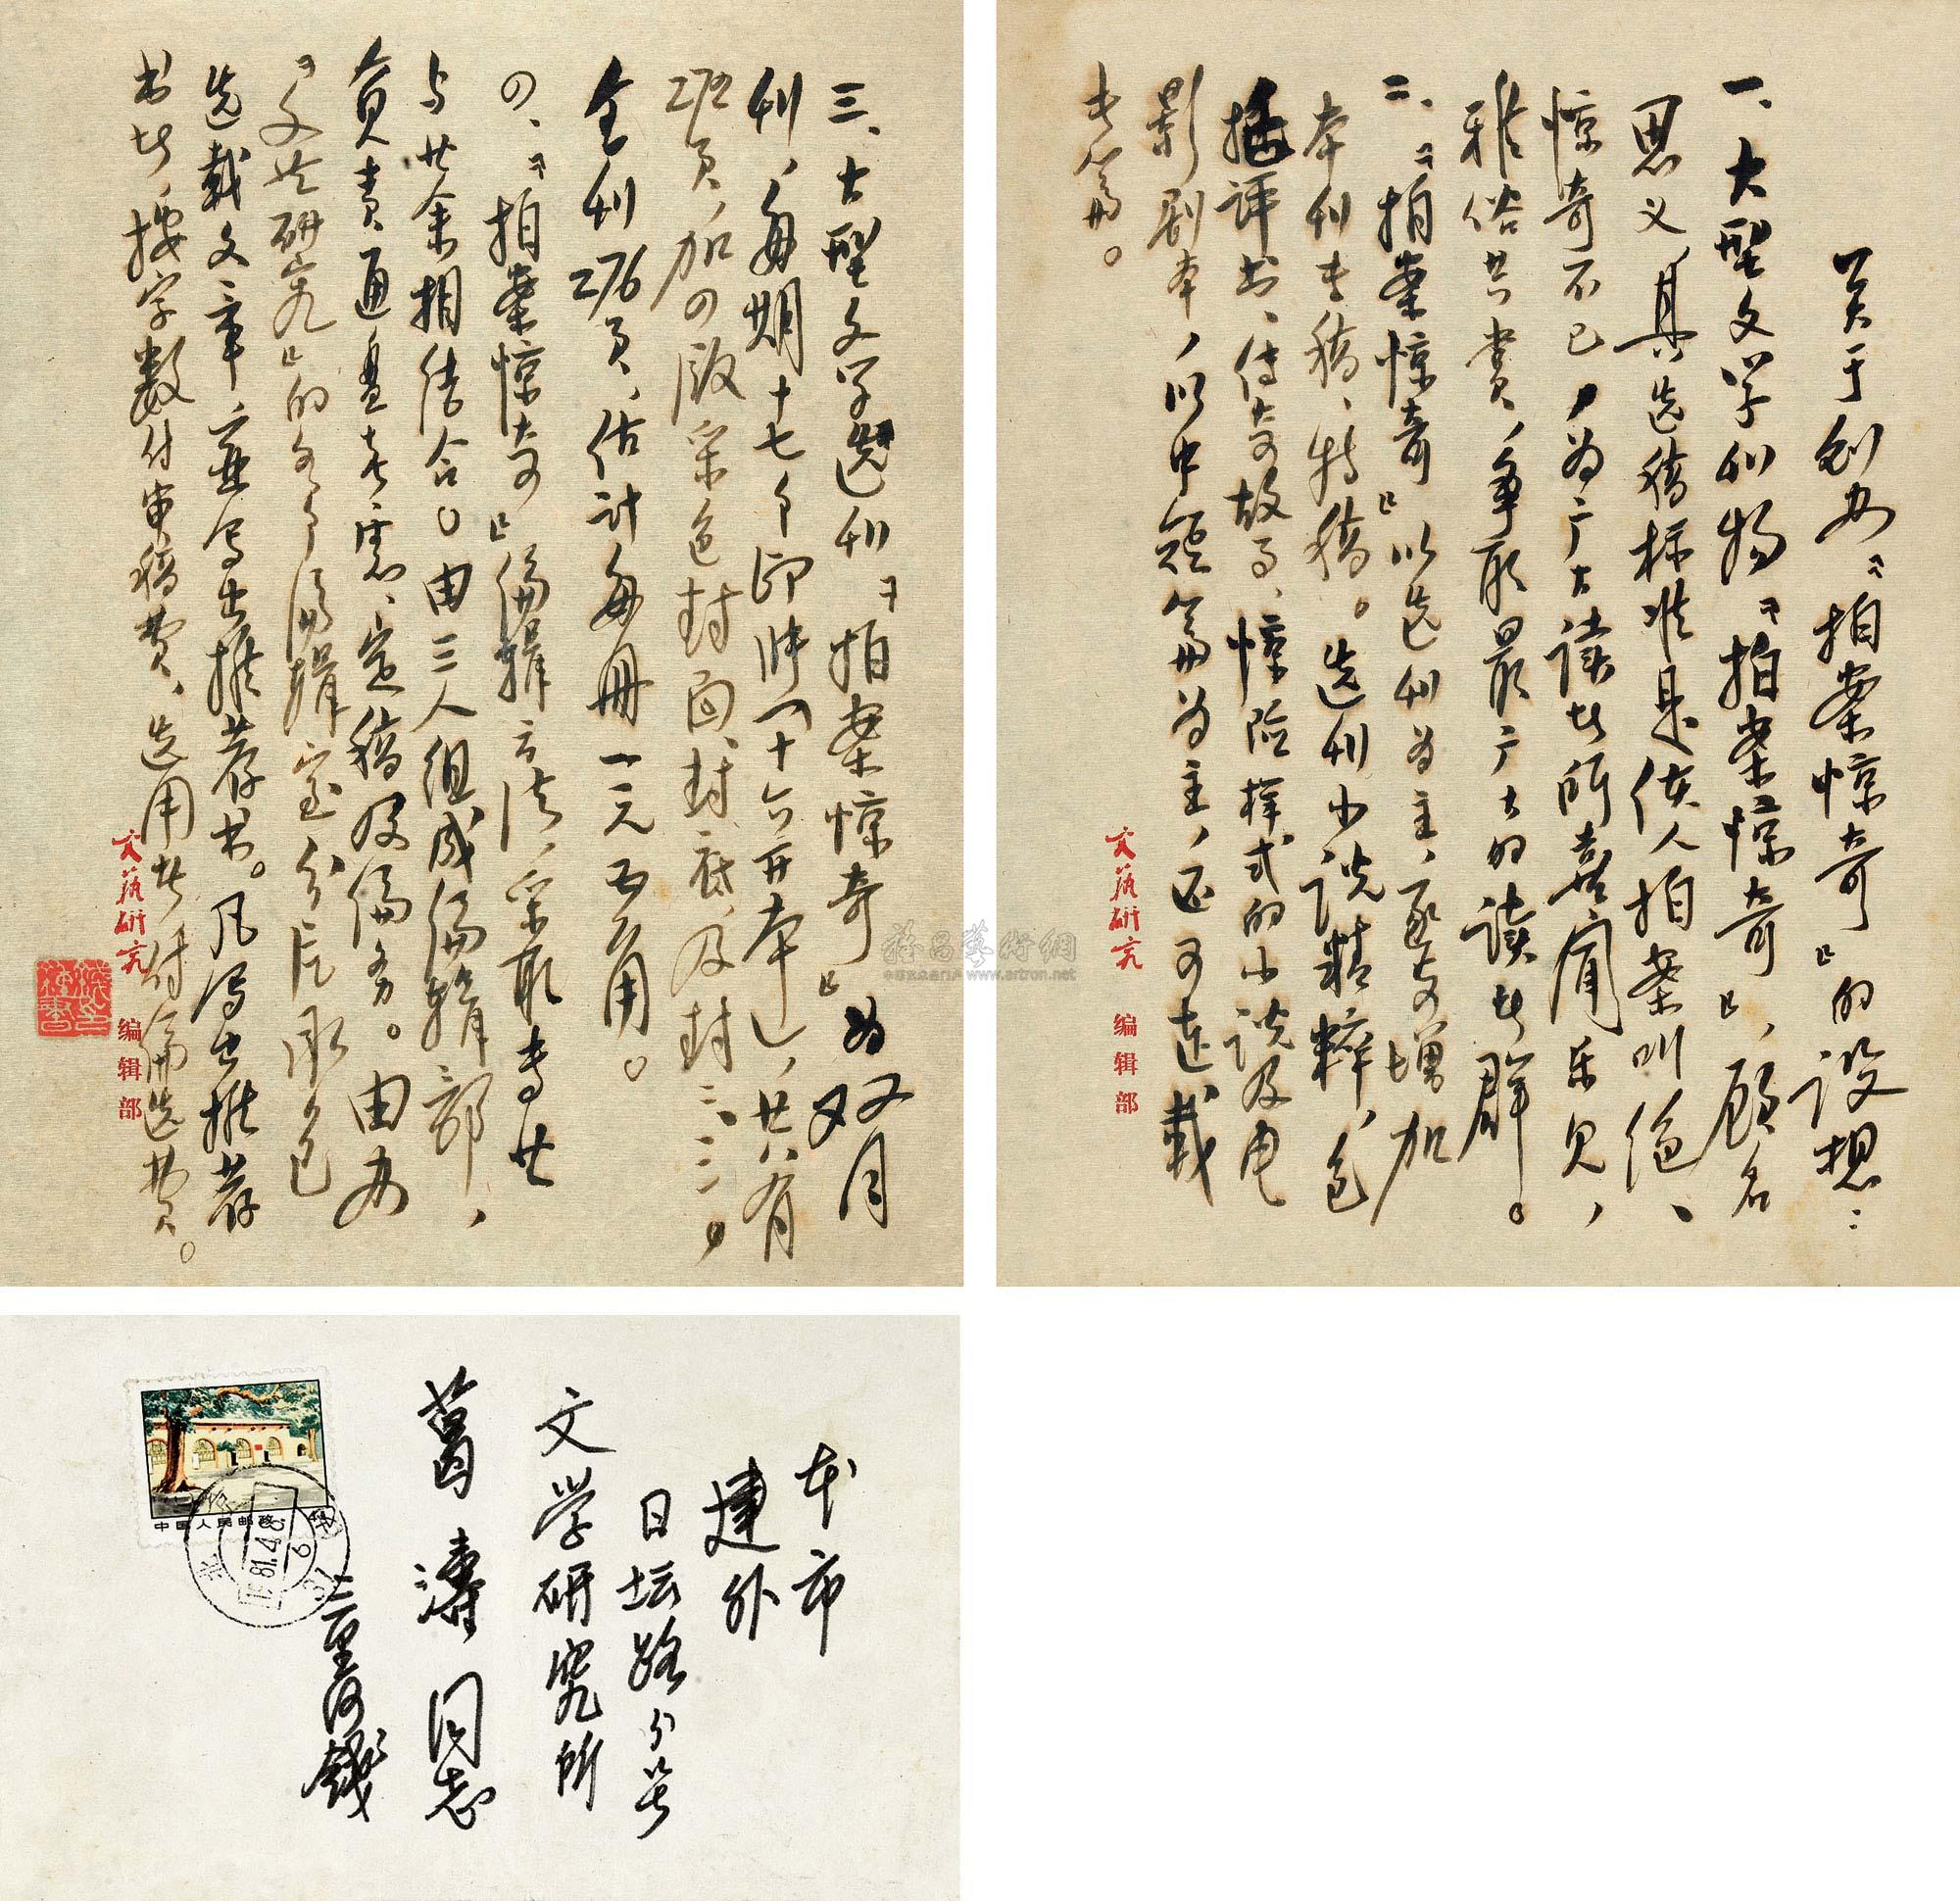 关于创办《拍案惊奇》的设想：
一、大型文学刊物《拍案惊奇》，顾名
思义，其选稿标准是使人拍案叫绝、
惊奇不已，为广大读者所喜闻乐见，
雅俗共赏，争取最广大的读者群。
二、《拍案惊奇》以选刊为主，逐文增加
本刊专稿、特稿。选刊小说精粹，包
括评书、传奇故事、惊险样式的小说及电
影剧本，以中短篇为主，还可连载
长篇。
文艺研究 编辑部
三、大型文学选刊《拍案惊奇》为双月
刊，每期十七个印张（十六开本），共有
272页，加四版彩色封面、封底及封二、三。
全刊276页，估计每册一元五角。
四、《拍案惊奇》编辑方法，采取专业
与业余相结合。由三人组成编辑部，
负责通盘考虑、定稿及编务。由办
《文艺研究》的各个编辑室分片承包
选载文章，并写出推荐书。凡写出推荐
书者，按字数付审稿费、选用者付编选费。
文艺研究 编辑部
本市
建外
日坛路6号
文学研究所
葛涛同志
三里河钱
中国人民邮政
北京
1981.4.6
雅昌藝術網
www.artron.net